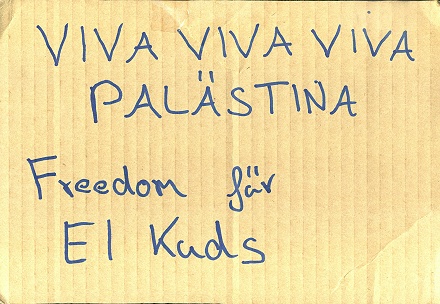 VIVA VIVA VIVA
PALÄSTINA
Freedom für
El Kuds